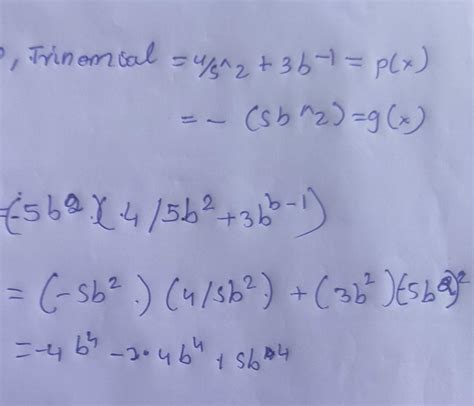 , Trinomial = 4/5^2 + 3b-1 = p(x)
= - (5b^2) = g(x)
= (-5b2)(4/5b²+3b^b-1)
= (-5b².) (4/5b².) + (3b²)(-5b2)²
= -4b⁴ - 2.4b⁴ + 5b^4